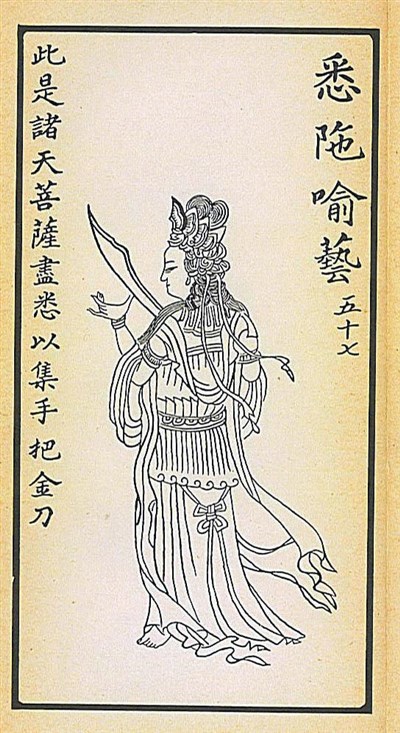 悉陁喻藝 五十七
此是諸天菩薩盡悉以集手把金刀